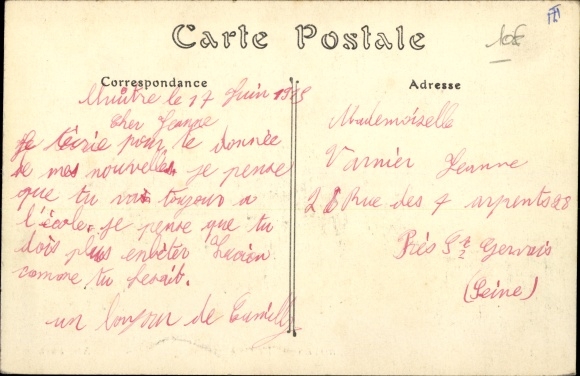 10€
Carte Postale
Correspondance
le 17 Juin
Cher Jeanne
Je técrie pour te donnée
de mes nouvelles je pense
que tu vais toujour a
l'école. je pense que tu
dois plus enbèter Lucien
comme tu fesait.
un bonjour de
Adresse
Mademoiselle
Varnier Jeanne
28 Rue des 7 arpents 28
Près St Gervais
(Seine)